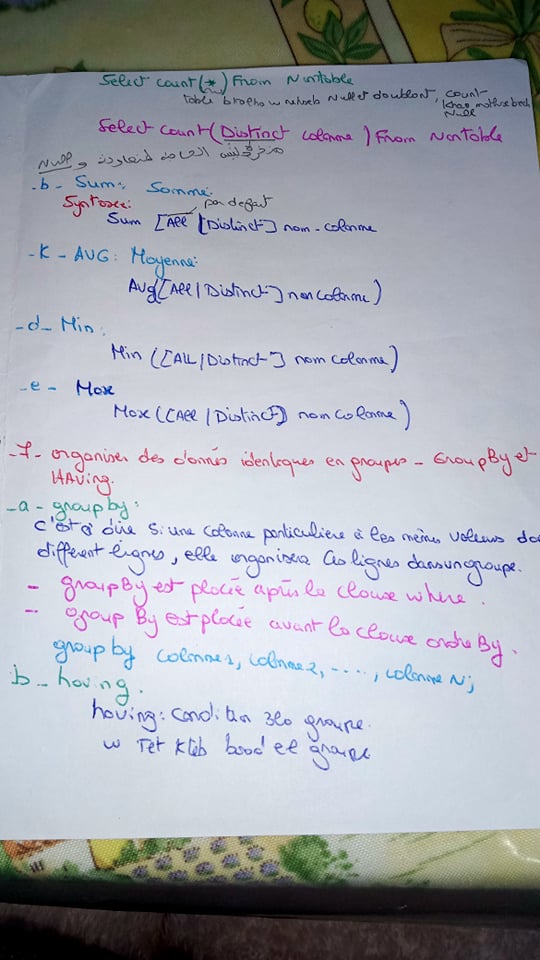 Select count(*) From Nomtable
table b kolha w nehseb Null et doublont, count
Null
Select count( Distinct colonne ) From Nomtable
و Null
-b- Sum: Somme:
Syntaxe: par defaut
Sum [All | Distinct] nom-colonne
-K- AVG: Moyenne:
Avg([All | Distinct] nom colonne)
-d- Min:
Min ([ALL / Distinct] nom colonne)
-e- Max
Max ([All / Distinct] nom colonne)
-7- organiser des donnés identiques en groupes - Group By et
HAving.
-a- group by:
c'est à dire si une colonne particulière à les mêmes valeurs da
différent lignes, elle organisera ces lignes dans un groupe.
- group By est placée après la clause where.
- group By est placée avant la clause ordre By.
group by colonne1, colonne2, ...., colonne N;
b- having.
having: condition 3la groupe.
w Tet kteb baad el groupe